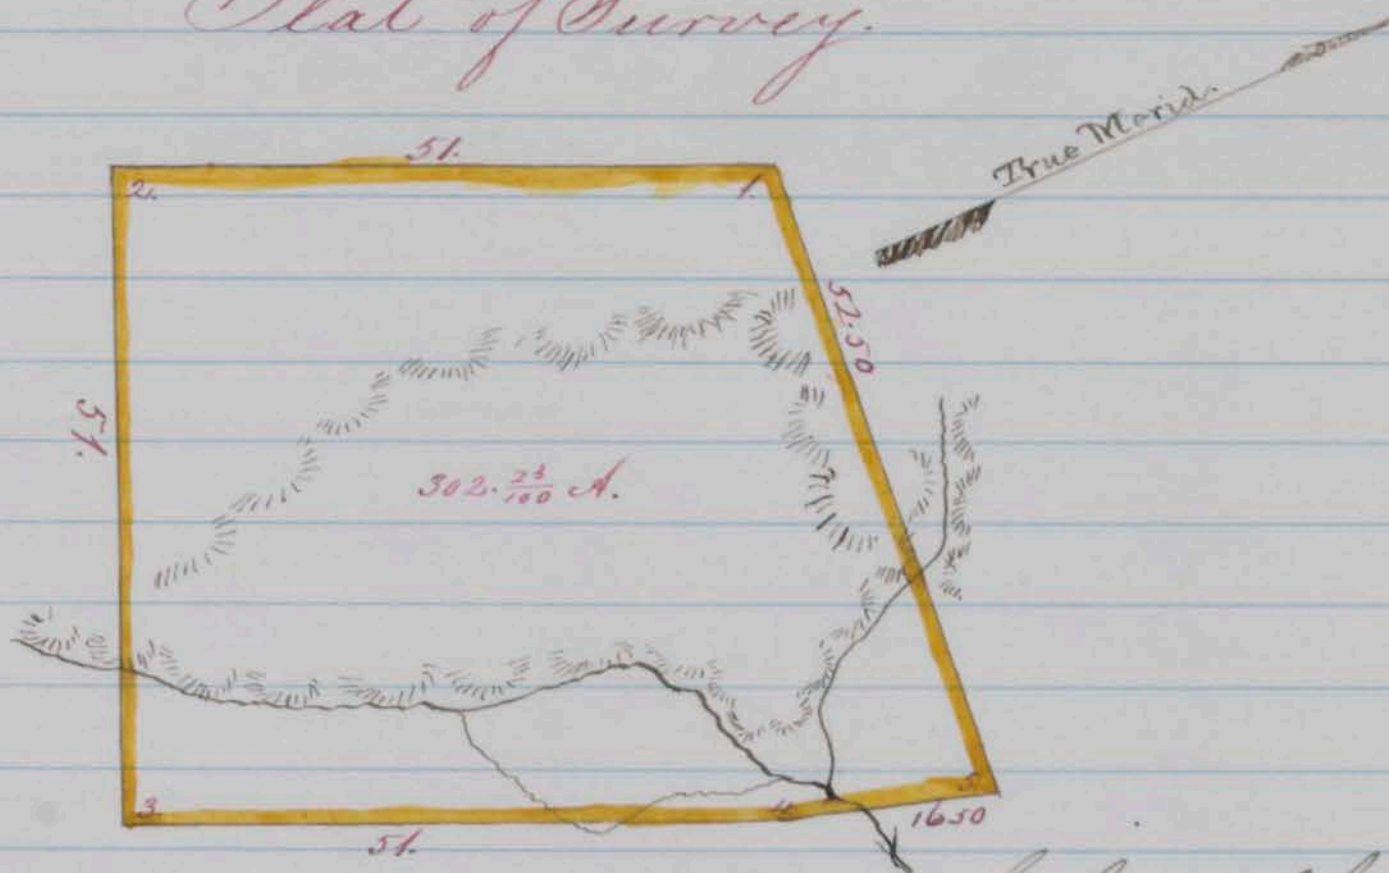 Plat of Survey.
True Merid.
51.
2.
1.
52.50
51.
302. 23/100 A.
3.
4.
5.
51.
1650